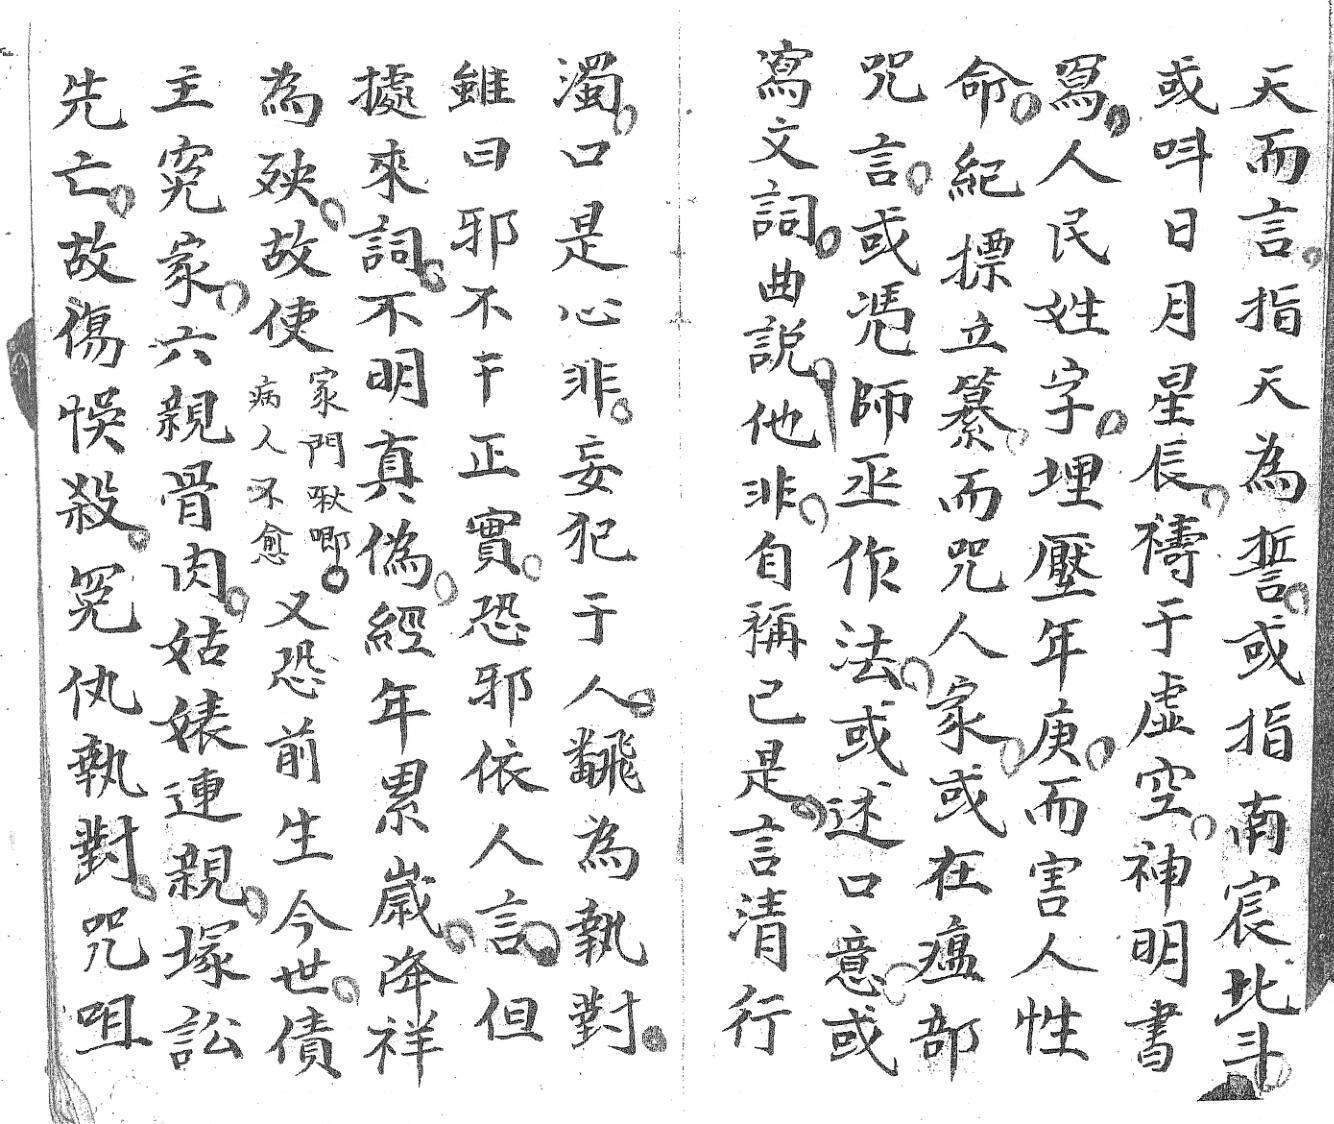 天而言指天為誓或指南宸北斗
或呌日月星辰禱于虛空神明書
冩人民姓字埋壓年庚而害人性
命紀摽立纂而咒人家或在瘟部
咒言或憑師巫作法或述口意或
寫文詞曲説他非自稱已是言清行
濁口是心非妄犯于人飜為執對
雖曰邪不干正實恐邪依人言但
據來詞不明真偽經年累嵗降祥
為殃故使
家門啾唧
病人不愈
又恐前生今世債
主寃家六親骨肉姑婊連親塚訟
先亡故傷悞殺冤仇執對咒咀